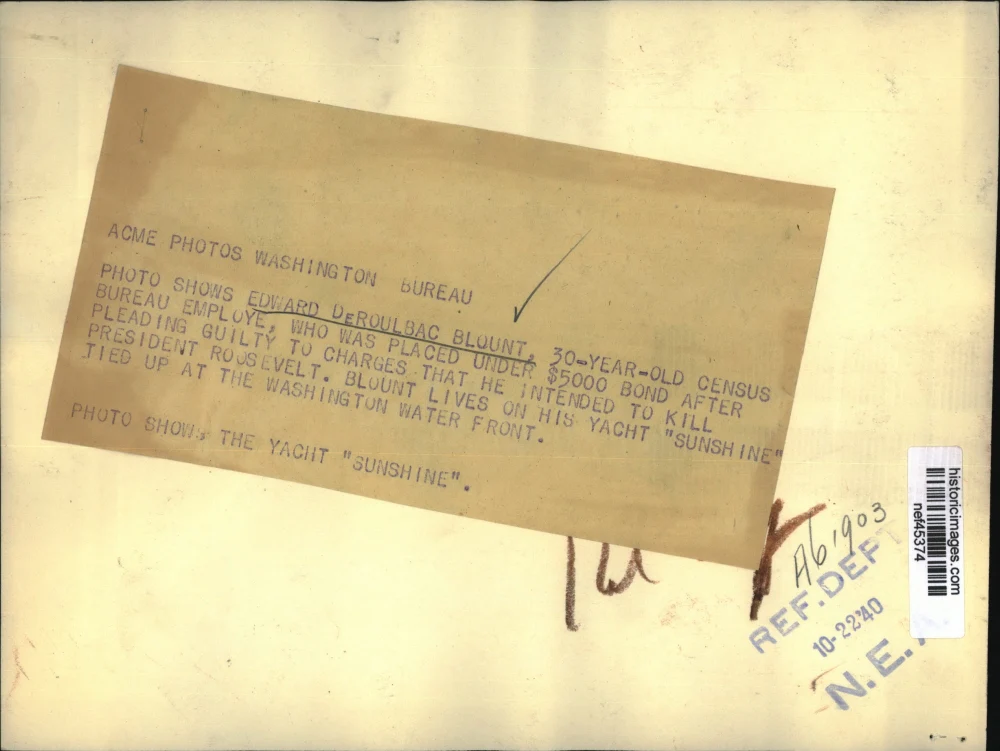 ACME PHOTOS WASHINGTON BUREAU
PHOTO SHOWS EDWARD DeROULBAC BLOUNT, 30-YEAR-OLD CENSUS
BUREAU EMPLOYE, WHO WAS PLACED UNDER $5000 BOND AFTER
PLEADING GUILTY TO CHARGES THAT HE INTENDED TO KILL
PRESIDENT ROOSEVELT. BLOUNT LIVES ON HIS YACHT "SUNSHINE"
TIED UP AT THE WASHINGTON WATER FRONT.
PHOTO SHOWS THE YACHT "SUNSHINE".
A61903
REF. DEPT
10-22-40
N.E.A
historicimages.com
nef45374